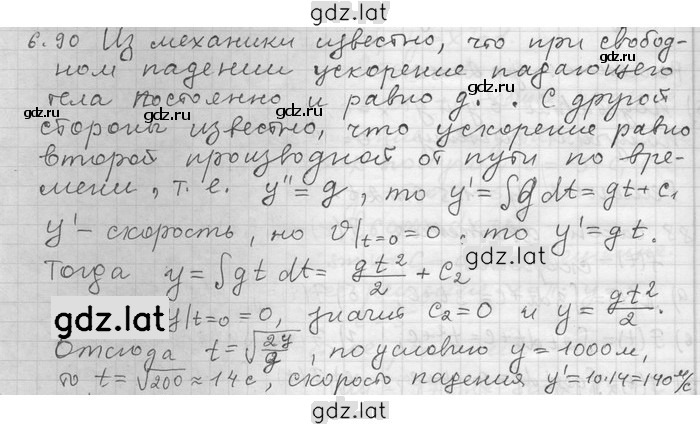 gdz.lat
6.90 Из механики известно, что при свобод-
ном падении ускорение падающего
тела постоянно и равно g. . С другой
стороны известно, что ускорение равно
второй производной от пути по вре-
мени, т. е. y'' = g, то y' = ∫g dt = gt + c₁
y' - скорость, но ϑ|t=0 = 0. то y' = gt.
Тогда y = ∫gt dt = gt²/2 + C₂
gdz.lat y|t=0 = 0, значит C₂ = 0 и y = gt²/2.
Отсюда t = √(2y/g), по условию y = 1000 м,
то t = √200 ≈ 14 с, скорость падения y' = 10·14 = 140 м/с
gdz.lat